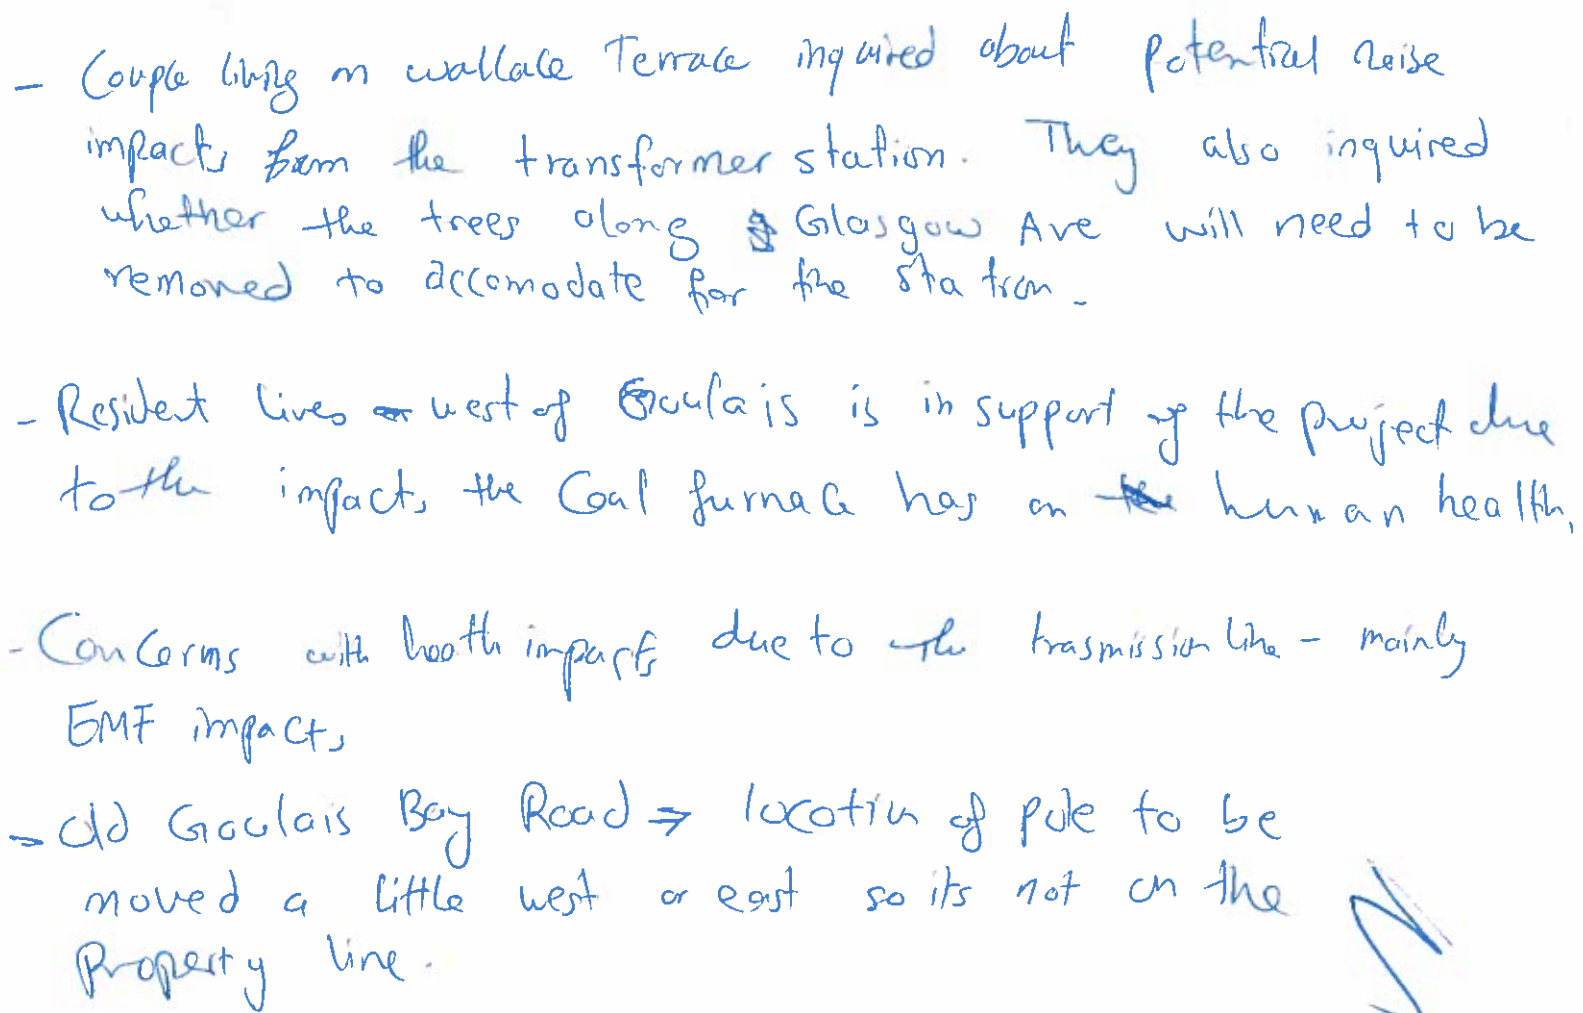 - Couple living on wallace Terrace inquired about potential noise
impacts from the transformer station. They also inquired
whether the trees along Glasgow Ave will need to be
removed to accomodate for the station.
- Resident lives west of Goulais is in support of the project due
to the impacts the Coal furnace has on human health.
- Concerns with health impacts due to the trasmission line - mainly
EMF impacts
- Old Goulais Bay Road => location of pole to be
moved a little west or east so its not on the
Property line.